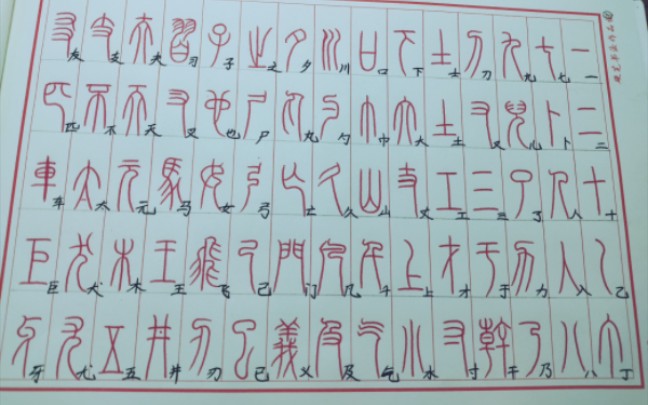 一二十乙丁
七卜人入八
九儿了力乃
刀又三于干
士土工才寸
下大丈上水
口巾山千气
川勺久凡及
夕丸亡门义
之尸弓己已
子也女飞刃
习叉马王井
夫天元木五
支不太犬尤
友匹车巨牙